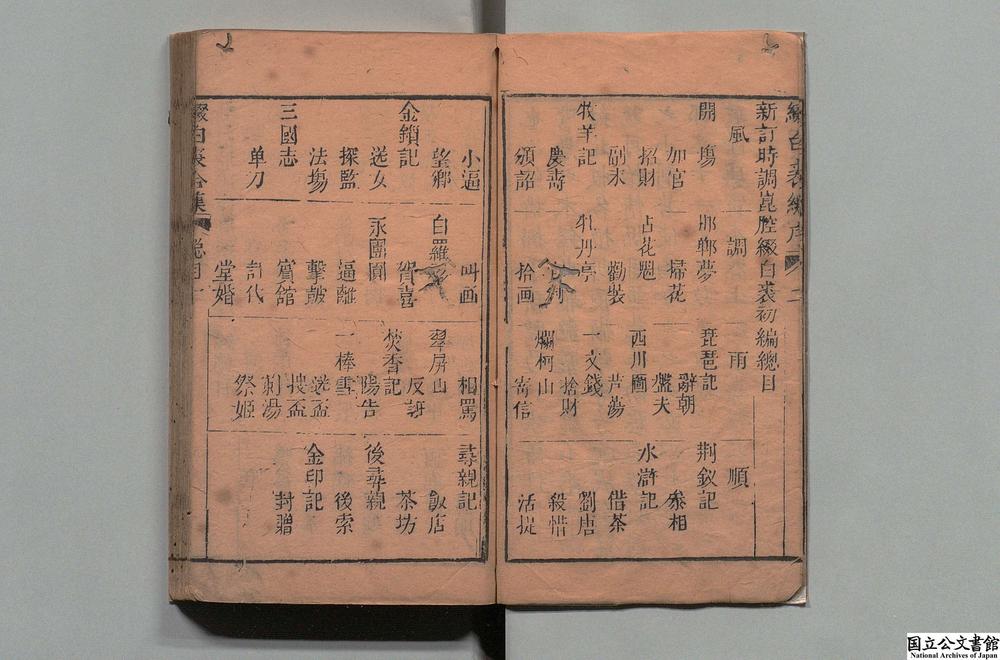 新訂時調崑腔綴白裘初編總目
風 調 雨 順
開塲 邯鄲夢 琵琶記 荆釵記
加官 掃花 辭朝 叅相
招財 占花魁 盤夫 水滸記
副末 勸裝 西川圖 借茶
牧羊記 牡丹亭 芦蕩 劉唐
慶壽 一文錢 殺惜
頒詔 拾画 捨財 活捉
爛柯山
寄信
小逼 叫画 相罵 尋親記
望鄉 白羅衫 翠屏山 飯店
金鎖記 賀喜 反誑 茶坊
送女 永團圓 焚香記 後尋親
探監 逼離 陽告 後索
法塲 擊皷 一棒雪 金印記
三國志 賓館 送盃 封贈
单刀 計代 搜盃
堂婚 刺湯
祭姬
綴白裘合集
総目
国立公文書館
National Archives of Japan